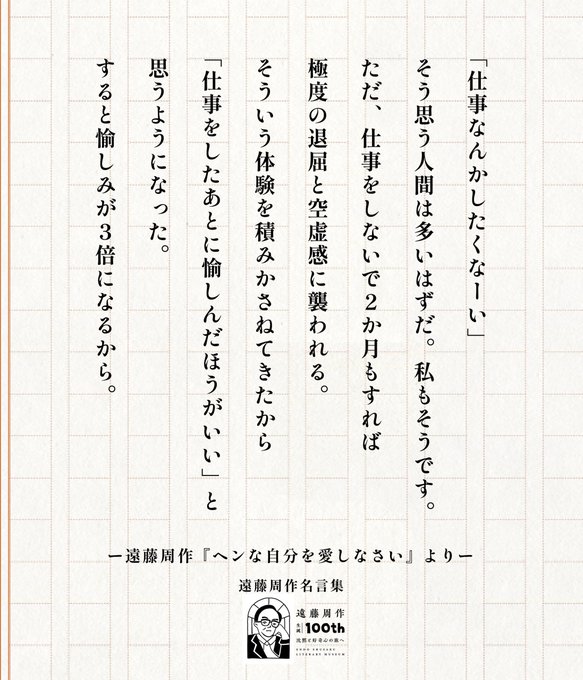 「仕事なんかしたくなーい」
そう思う人間は多いはずだ。私もそうです。
ただ、仕事をしないで2か月もすれば
極度の退屈と空虚感に襲われる。
そういう体験を積みかさねてきたから
「仕事をしたあとに愉しんだほうがいい」と
思うようになった。
すると愉しみが3倍になるから。
ー遠藤周作『ヘンな自分を愛しなさい』よりー
遠藤周作名言集
遠藤周作
生誕 100th
沈黙と好奇心の旅へ
ENDO SHUSAKU
LITERARY MUSEUM